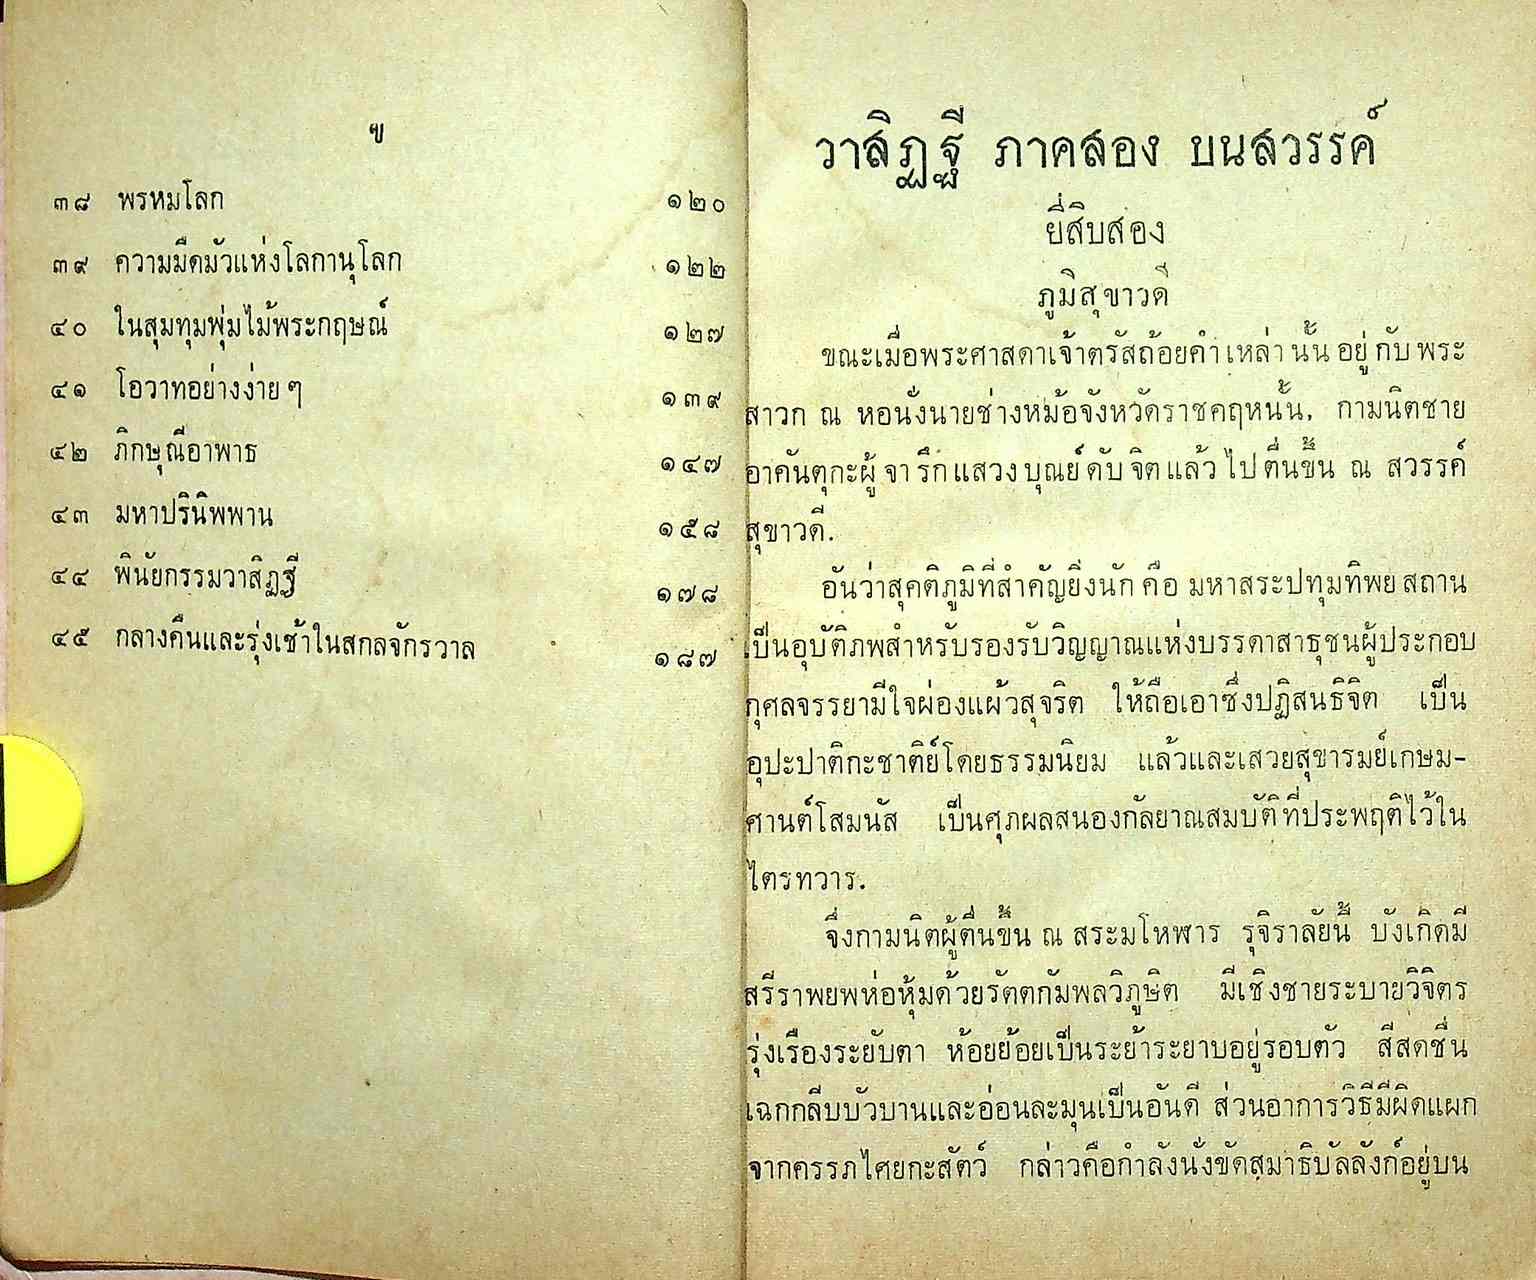 ฃ
๓๘ พรหมโลก ๑๒๐
๓๙ ความมืดมัวแห่งโลกานุโลก ๑๒๒
๔๐ ในสุมทุมพุ่มไม้พระกฤษณ์ ๑๒๗
๔๑ โอวาทอย่างง่าย ๆ ๑๓๙
๔๒ ภิกษุณีอาพาธ ๑๔๗
๔๓ มหาปรินิพพาน ๑๕๘
๔๔ พินัยกรรมวาสิฏฐี ๑๗๘
๔๕ กลางคืนและรุ่งเช้าในสกลจักรวาล ๑๘๗
วาสิฏฐี ภาคสอง บนสวรรค์
ยี่สิบสอง
ภูมิสุขาวดี
ขณะเมื่อพระศาสดาเจ้าตรัสถ้อยคำเหล่านั้นอยู่กับพระ
สาวก ณ หอนั่งนายช่างหม้อจังหวัดราชคฤหนั้น, กามนิตชาย
อาคันตุกะผู้จารึกแสวงบุณย์ดับจิตแล้วไปตื่นขึ้น ณ สวรรค์
สุขาวดี.
อันว่าสุคติภูมิที่สำคัญยิ่งนัก คือ มหาสระปทุมทิพยสถาน
เป็นอุบัติภพสำหรับรองรับวิญญาณแห่งบรรดาสาธุชนผู้ประกอบ
กุศลจรรยามีใจผ่องแผ้วสุจริต ให้ถือเอาซึ่งปฏิสนธิจิต เป็น
อุปะปาติกะชาติย์โดยธรรมนิยม แล้วและเสวยสุขารมย์เกษม-
ศานต์โสมนัส เป็นศุภผลสนองกัลยาณสมบัติที่ประพฤติไว้ใน
ไตรทวาร.
จึ่งกามนิตผู้ตื่นขึ้น ณ สระมโหฬาร รุจิราลัยนี้ บังเกิดมี
สรีราพยพห่อหุ้มด้วยรัตตกัมพลวิภูษิต มีเชิงชายระบายวิจิตร
รุ่งเรืองระยับตา ห้อยย้อยเป็นระย้าระยาบอยู่รอบตัว สีสดชื่น
เฉกกลีบบัวบานและอ่อนละมุนเป็นอันดี ส่วนอาการวิธีมีผิดแผก
จากครรภไศยกะสัตว์ กล่าวคือกำลังนั่งขัดสมาธิบัลลังก์อยู่บน